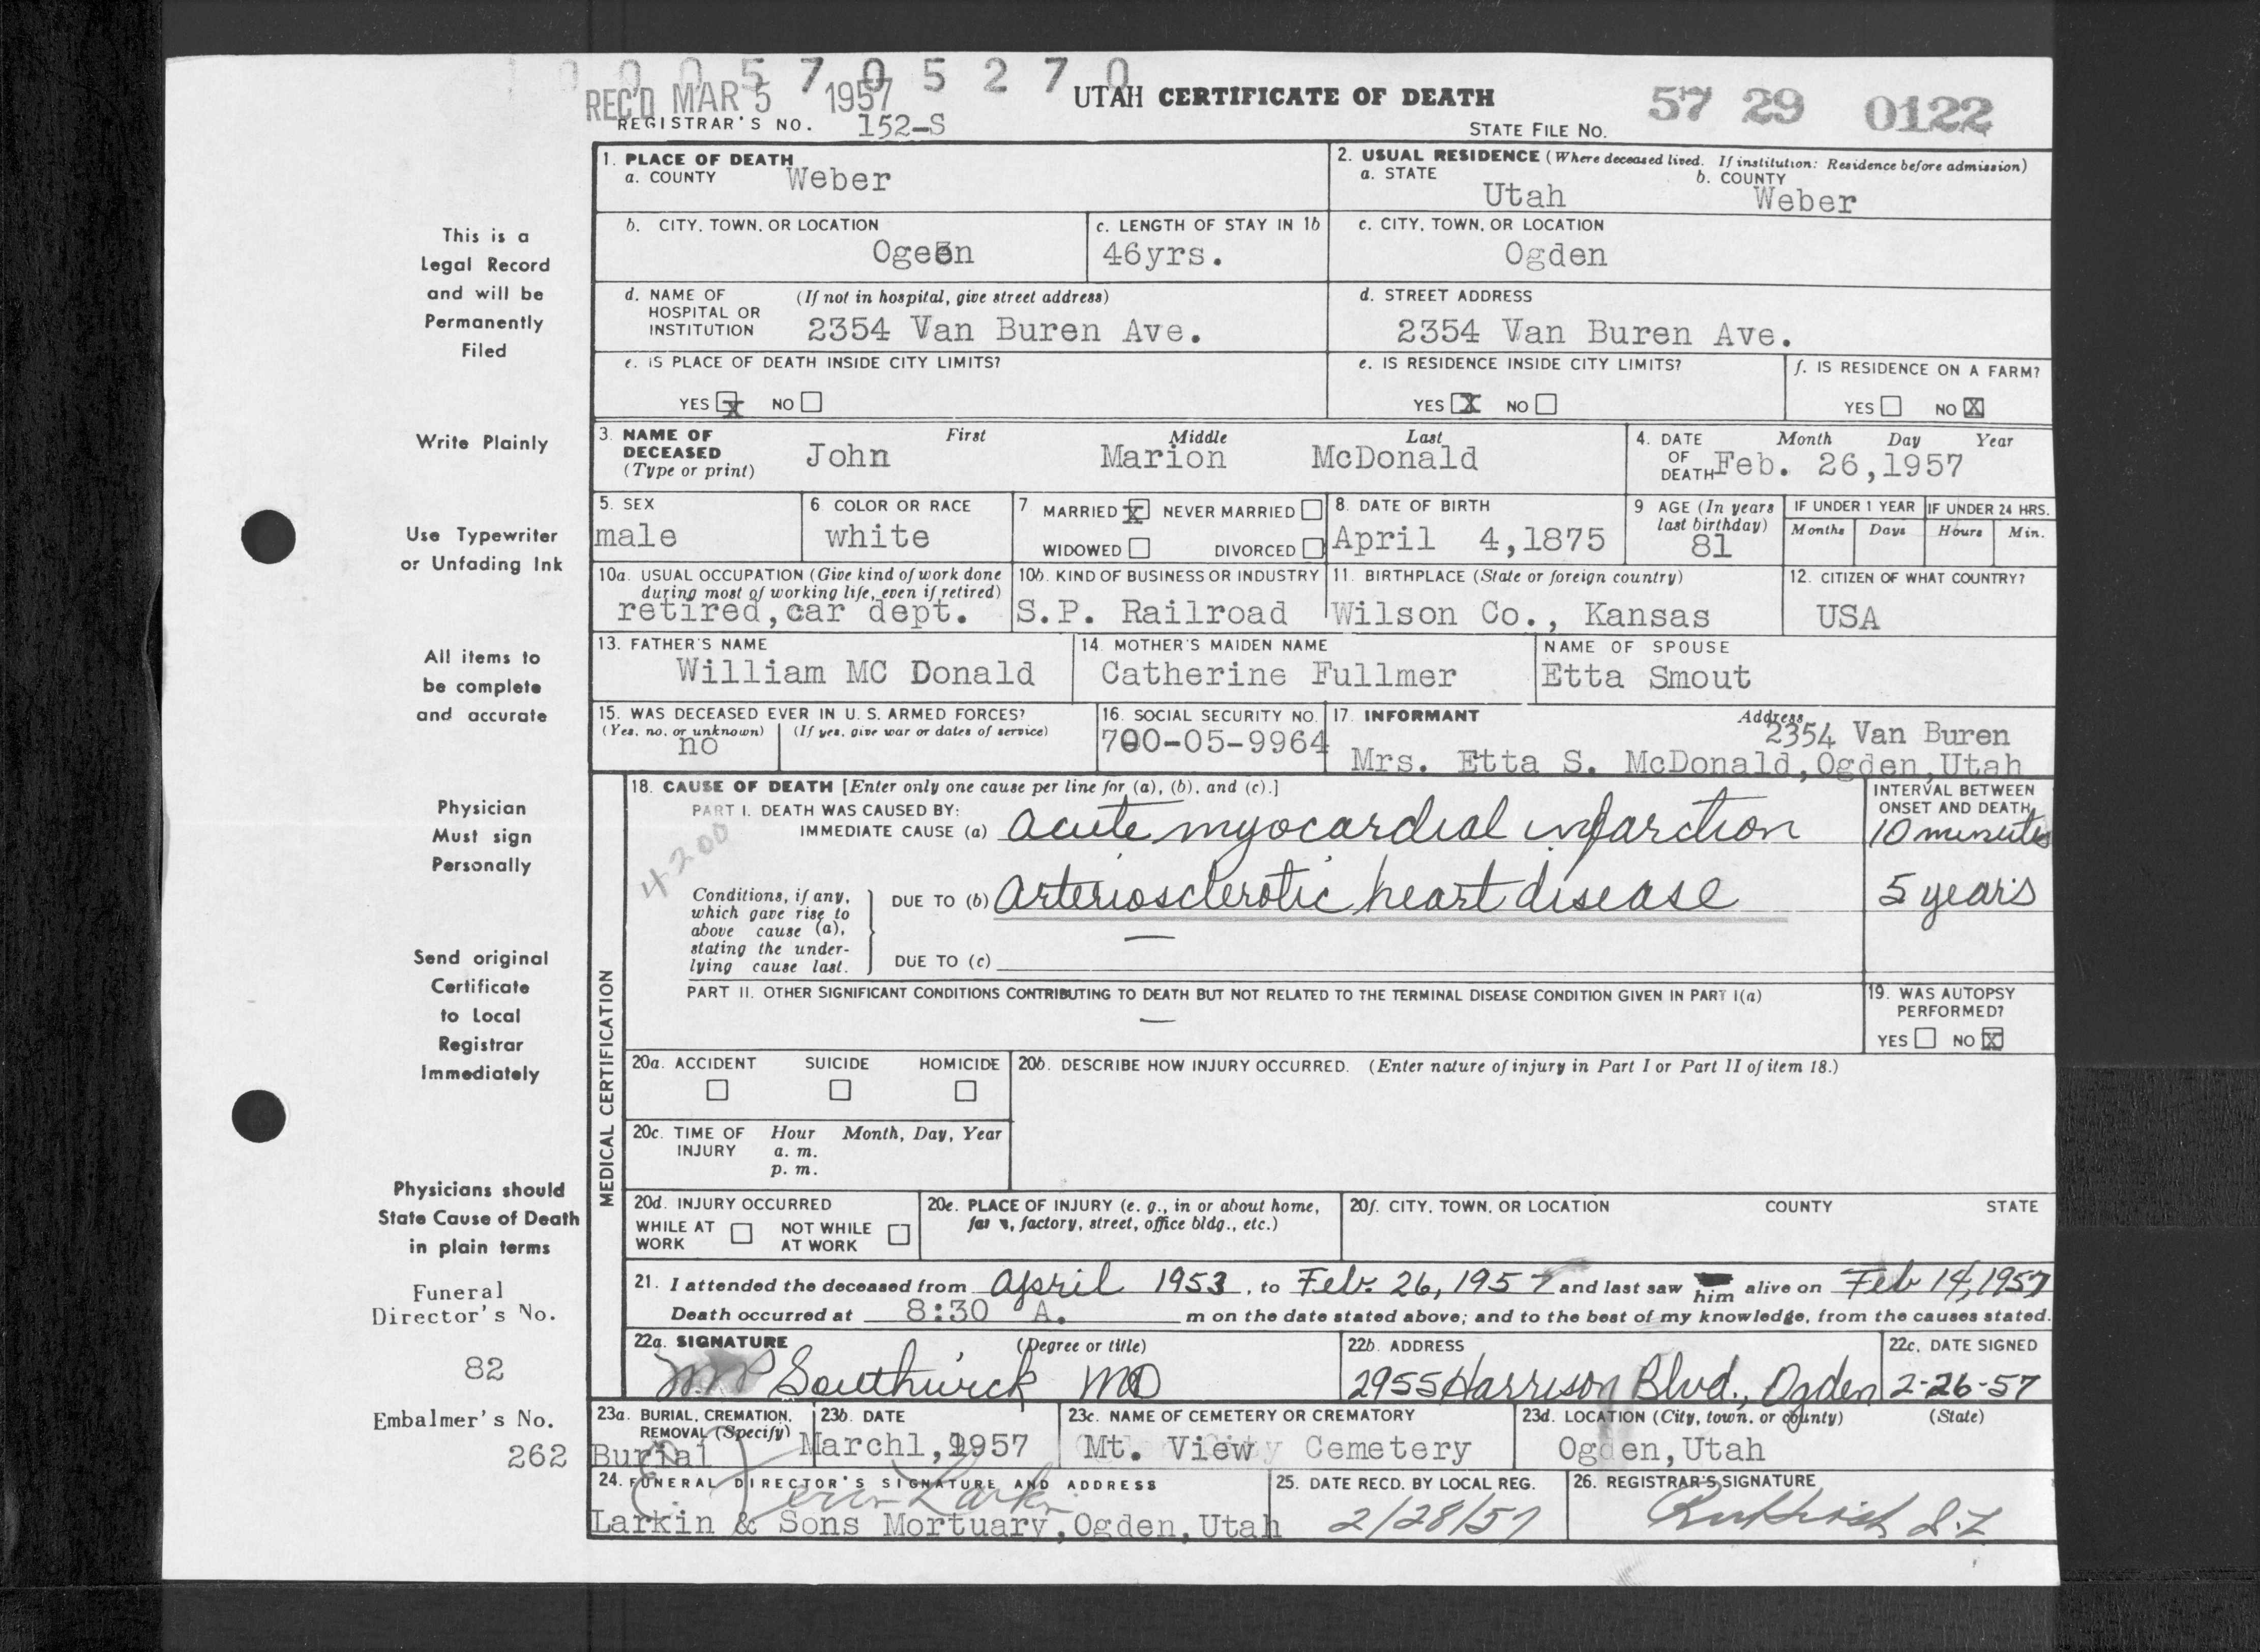 0 0 0 5 7 0 5 2 7 0
REC'D MAR 5 1957
UTAH CERTIFICATE OF DEATH
57 29 0122
REGISTRAR'S NO. 152-S
STATE FILE NO.
1. PLACE OF DEATH
a. COUNTY Weber
2. USUAL RESIDENCE (Where deceased lived. If institution: Residence before admission)
a. STATE Utah b. COUNTY Weber
b. CITY, TOWN, OR LOCATION
c. LENGTH OF STAY IN 1b 46yrs.
c. CITY, TOWN, OR LOCATION Ogden
d. NAME OF HOSPITAL OR INSTITUTION (If not in hospital, give street address)
2354 Van Buren Ave.
d. STREET ADDRESS
2354 Van Buren Ave.
e. IS PLACE OF DEATH INSIDE CITY LIMITS?
YES X NO
e. IS RESIDENCE INSIDE CITY LIMITS?
YES X NO
f. IS RESIDENCE ON A FARM?
YES NO X
3. NAME OF DECEASED (Type or print) First Middle Last
John Marion McDonald
4. DATE OF DEATH Month Day Year
Feb. 26,1957
5. SEX male
6 COLOR OR RACE white
7 MARRIED X NEVER MARRIED
WIDOWED DIVORCED
8. DATE OF BIRTH April 4,1875
9 AGE (In years last birthday) 81
IF UNDER 1 YEAR Months Days
IF UNDER 24 HRS. Hours Min.
10a. USUAL OCCUPATION (Give kind of work done during most of working life, even if retired)
retired,car dept.
10b. KIND OF BUSINESS OR INDUSTRY
S.P. Railroad
11. BIRTHPLACE (State or foreign country)
Wilson Co., Kansas
12. CITIZEN OF WHAT COUNTRY?
USA
13. FATHER'S NAME
William MC Donald
14. MOTHER'S MAIDEN NAME
Catherine Fullmer
NAME OF SPOUSE
Etta Smout
15. WAS DECEASED EVER IN U. S. ARMED FORCES?
(Yes, no, or unknown) (If yes, give war or dates of service)
no
16. SOCIAL SECURITY NO.
700-05-9964
17. INFORMANT Address
2354 Van Buren
Mrs. Etta S. McDonald,Ogden,Utah
MEDICAL CERTIFICATION
18. CAUSE OF DEATH [Enter only one cause per line for (a), (b), and (c).]
PART I. DEATH WAS CAUSED BY:
IMMEDIATE CAUSE (a) acute myocardial infarction
INTERVAL BETWEEN ONSET AND DEATH
10 minutes
4200
Conditions, if any, which gave rise to above cause (a), stating the underlying cause last.
DUE TO (b) Arteriosclerotic heart disease
5 years
DUE TO (c)
—
PART II. OTHER SIGNIFICANT CONDITIONS CONTRIBUTING TO DEATH BUT NOT RELATED TO THE TERMINAL DISEASE CONDITION GIVEN IN PART I(a)
—
19. WAS AUTOPSY PERFORMED?
YES NO X
20a. ACCIDENT SUICIDE HOMICIDE
20b. DESCRIBE HOW INJURY OCCURRED. (Enter nature of injury in Part I or Part II of item 18.)
20c. TIME OF INJURY Hour Month, Day, Year
a. m.
p. m.
20d. INJURY OCCURRED
WHILE AT WORK NOT WHILE AT WORK
20e. PLACE OF INJURY (e. g., in or about home, farm, factory, street, office bldg., etc.)
20f. CITY, TOWN, OR LOCATION COUNTY STATE
21. I attended the deceased from April 1953, to Feb. 26, 1957 and last saw him alive on Feb 14, 1957
Death occurred at 8:30 A. m on the date stated above; and to the best of my knowledge, from the causes stated.
22a. SIGNATURE (Degree or title)
Southwick MD
22b. ADDRESS
2955 Harrison Blvd., Ogden
22c. DATE SIGNED
2-26-57
23a. BURIAL, CREMATION, REMOVAL (Specify)
Burial
23b. DATE
March1,1957
23c. NAME OF CEMETERY OR CREMATORY
Mt. View Cemetery
23d. LOCATION (City, town, or county) (State)
Ogden,Utah
24. FUNERAL DIRECTOR'S SIGNATURE AND ADDRESS
Larkin
Larkin & Sons Mortuary,Ogden,Utah
25. DATE RECD. BY LOCAL REG.
2/28/57
26. REGISTRAR'S SIGNATURE
This is a
Legal Record
and will be
Permanently
Filed
Write Plainly
Use Typewriter
or Unfading Ink
All items to
be complete
and accurate
Physician
Must sign
Personally
Send original
Certificate
to Local
Registrar
Immediately
Physicians should
State Cause of Death
in plain terms
Funeral
Director's No.
82
Embalmer's No.
262